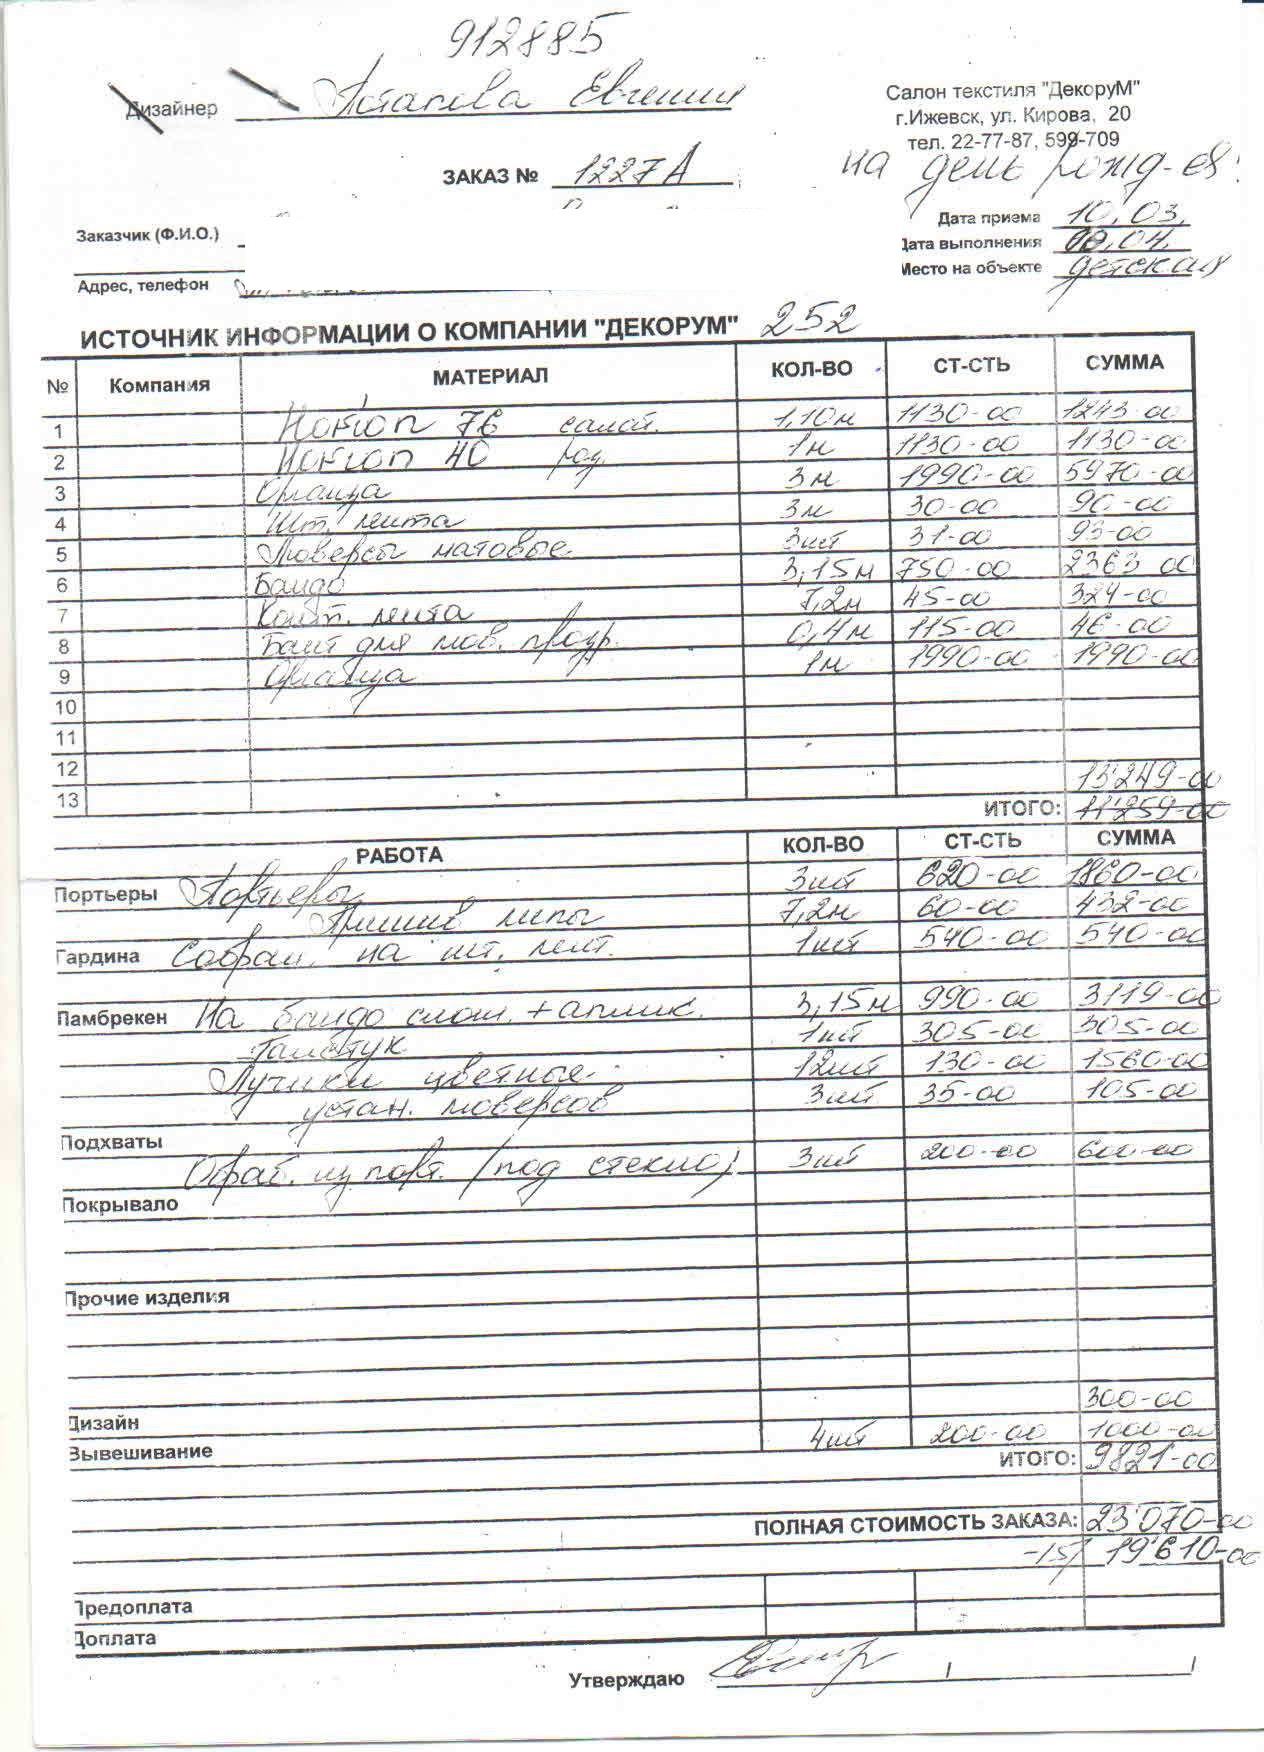 912885
Дизайнер Потапова Евгения
Салон текстиля "ДекоруМ"
г.Ижевск, ул. Кирова, 20
тел. 22-77-87, 599-709
ЗАКАЗ № 1227А
на день рожд-я!
Заказчик (Ф.И.О.)
Дата приема 10.03.
Дата выполнения 04.
Место на объекте детская
Адрес, телефон
ИСТОЧНИК ИНФОРМАЦИИ О КОМПАНИИ "ДЕКОРУМ" 252
№ Компания МАТЕРИАЛ КОЛ-ВО СТ-СТЬ СУММА
1 76 салат. 1,10м 1130-00 1243-00
2 40 роз. 1м 1130-00 1130-00
3 Органза 3м 1990-00 5970-00
4 Шт. лента 3м 30-00 90-00
5 Люверсы матовые 3шт 31-00 93-00
6 Бандо 3,15м 750-00 2363-00
7 Конт. лента 7,2м 45-00 324-00
8 для люв. прозр. 0,4м 115-00 46-00
9 Органза 1м 1990-00 1990-00
10
11
12
13 13'249-00
ИТОГО: 11'259-00
РАБОТА КОЛ-ВО СТ-СТЬ СУММА
Портьеры Портьеры 3шт 620-00 1860-00
Пришив липы 7,2м 60-00 432-00
Гардина Собран. на шт. лент. 1шт 540-00 540-00
Ламбрекен На бандо слож. + аплик. 3,15м 990-00 3119-00
Галстук 1шт 305-00 305-00
Лучики цветные 12шт 130-00 1560-00
устан. люверсов 3шт 35-00 105-00
Подхваты
Обраб. из порт. (под стекло) 3шт 200-00 600-00
Покрывало
Прочие изделия
Дизайн 300-00
Вывешивание 4шт 200-00 1000-00
ИТОГО: 9821-00
ПОЛНАЯ СТОИМОСТЬ ЗАКАЗА: 23'070-00
19'610-00
Предоплата
Доплата
Утверждаю